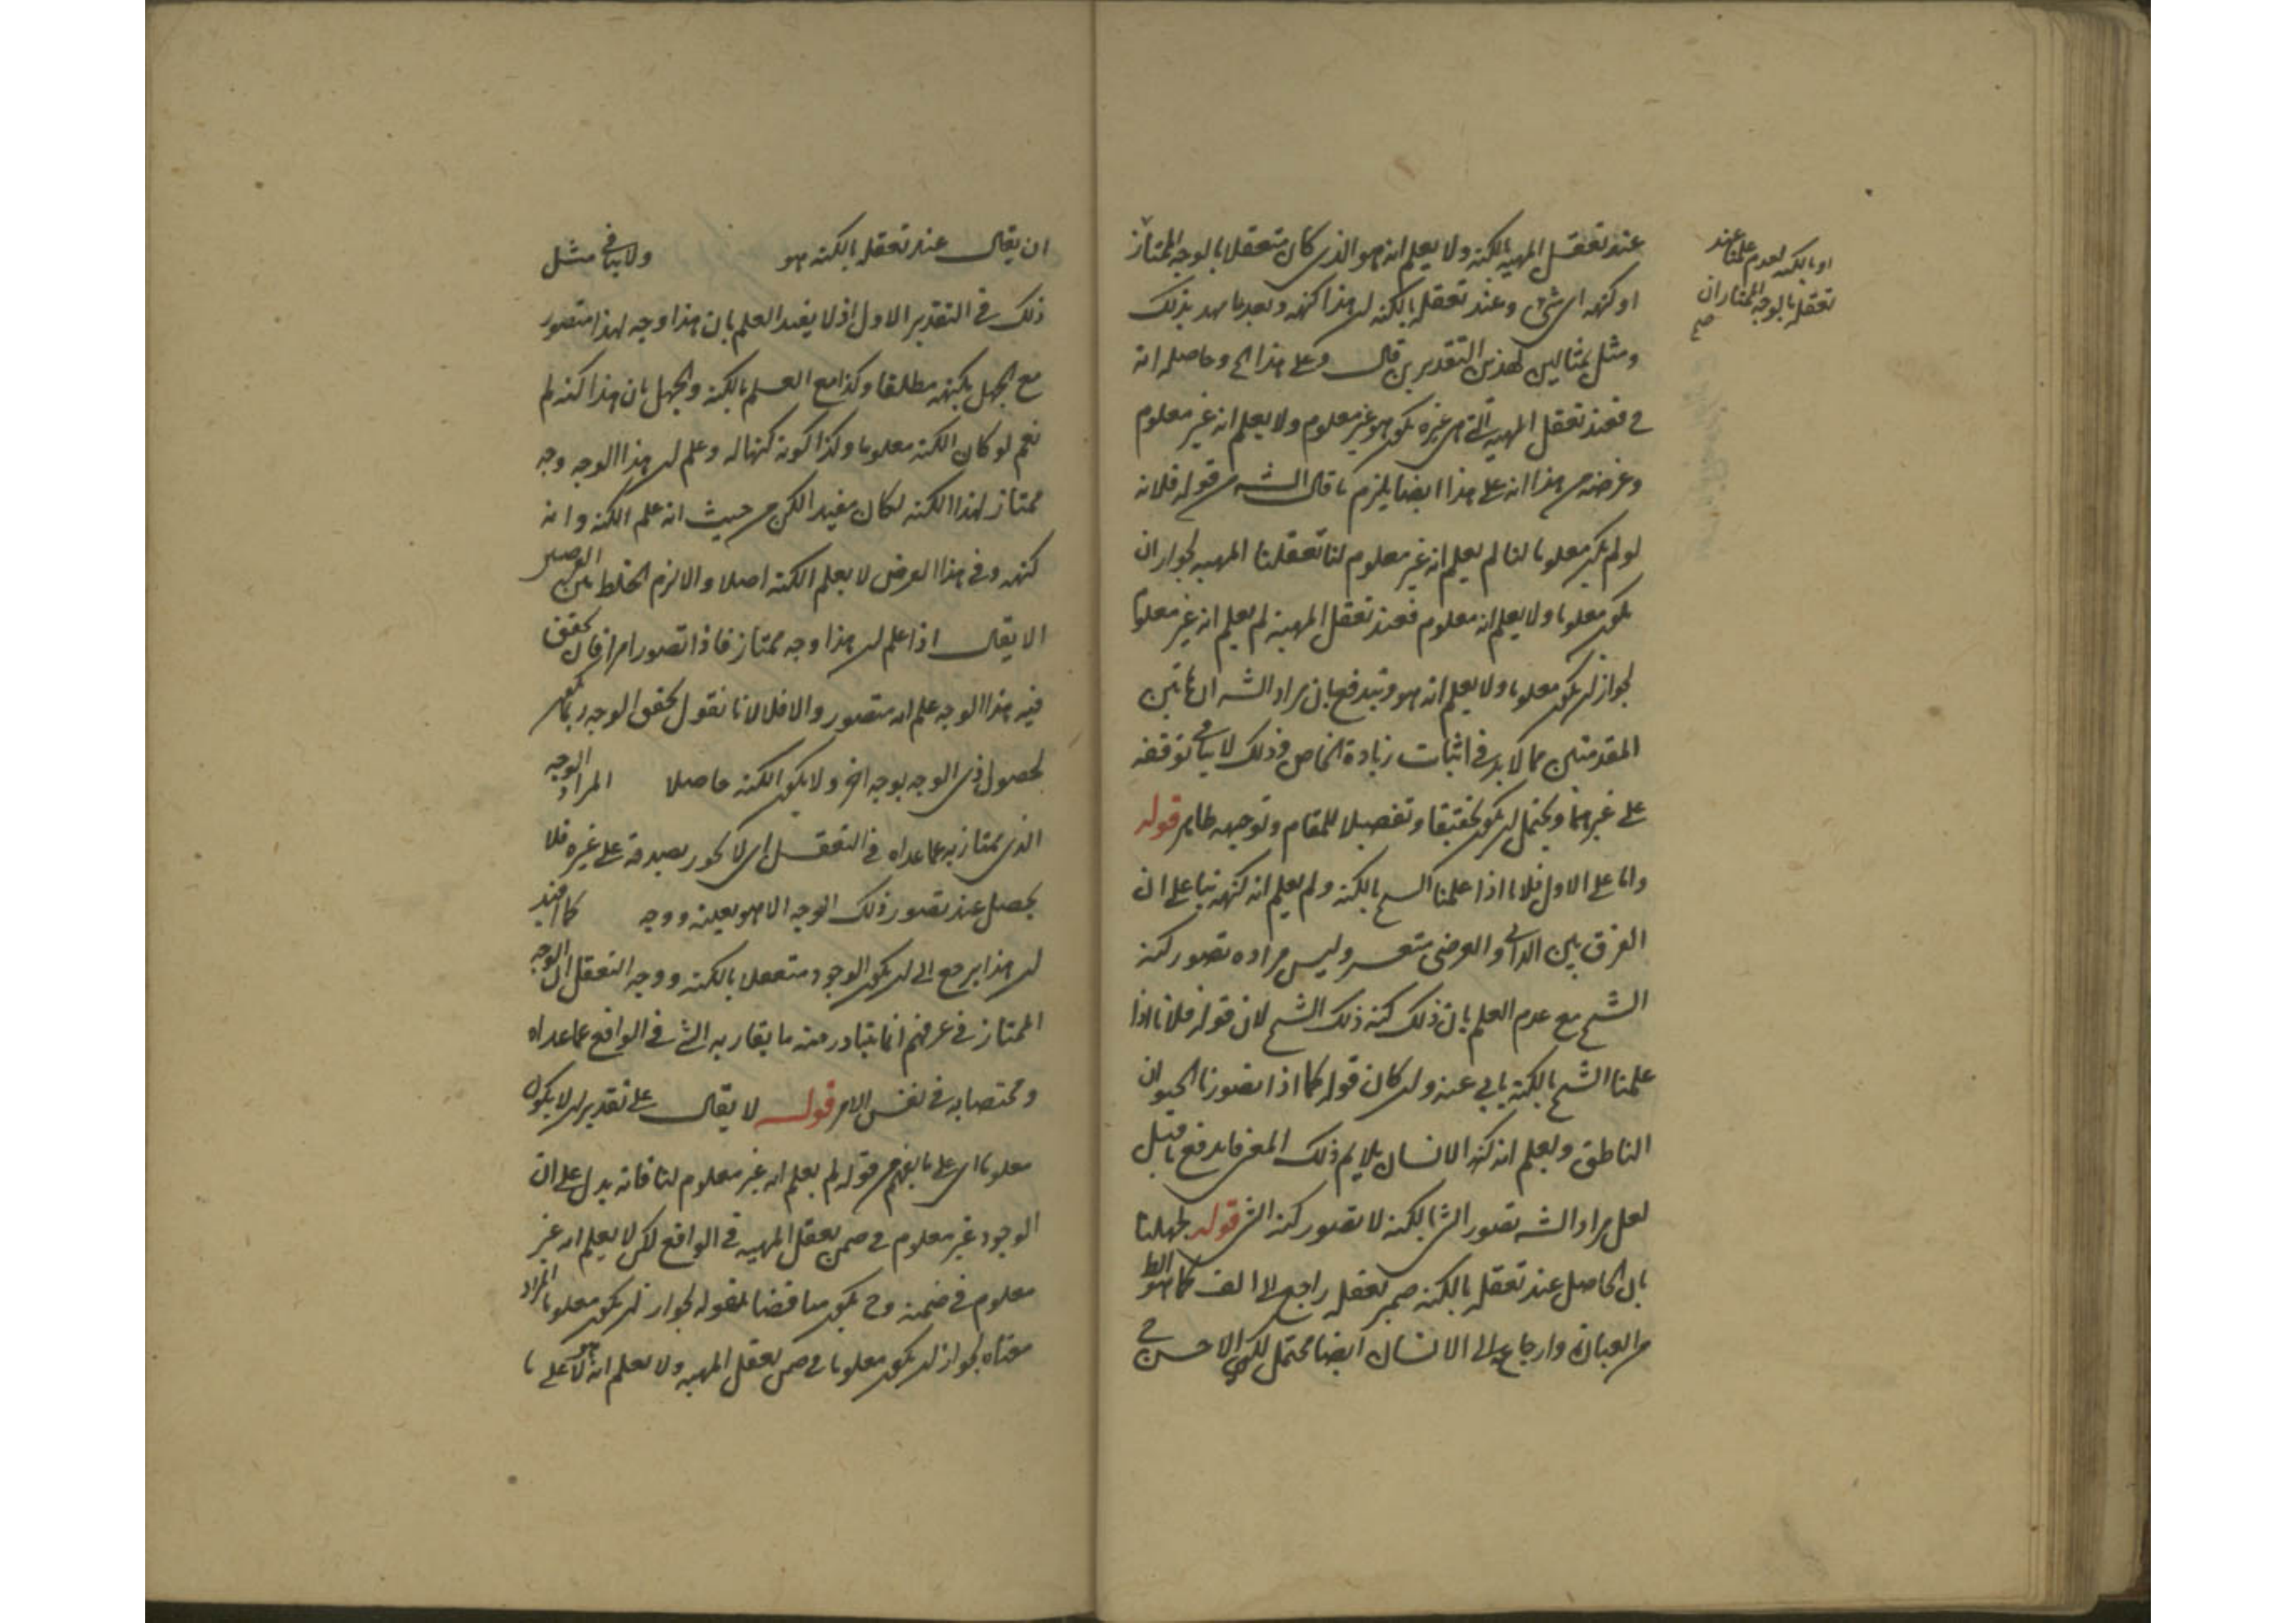 عند تعقل المهية بالكنه ولا يعلم انه هو الذى كان متعقلا بالوجه الممتاز
او كنهه اى شئ وعند تعقله بالكنه ان هذا كنهه وبعد ما مهد بذلك
ومثل بمثالين لهذين التقديرين قال وعلى هذا الخ وحاصله انه
ح فعند تعقل المهية التى هى غيره يكون هو غير معلوم ولا يعلم انه غير معلوم
وغرضه من هذا انه على هذا ايضا يلزم ما قال الشه من قوله فلانه
لو لم يكن معلوما لنا لم يعلم انه غير معلوم لنا تعقلنا المهية لجواز ان
يكون معلوما ولا يعلم انه معلوم فعند تعقل المهية لم يعلم انه غير معلوم
لجواز ان يكون معلوما ولا يعلم انه هو ويندفع بان مراد الشه ان هاتين
المقدمتين مما لابد فى اثبات زيادة الخاص وذلك لا ينافى توقفه
على غيرهما ويحتمل ان يكون تحقيقا وتفصيلا للمقام وتوجيهه ظاهر قوله
واما على الاول فلانا اذا علمنا الشئ بالكنه ولم يعلم انه كنهه بنا على ان
الفرق بين الذاتى والعرضى متعسر وليس مراده تصور كنه
الشئ مع عدم العلم بان ذلك كنه ذلك الشئ لان قوله فلانا اذا
علمنا الشئ بالكنه يابى عنه وان كان قوله كما اذا تصورنا الحيوان
الناطق ولم يعلم انه كنه الانسان يلايم ذلك المعنى فاندفع ما قيل
لعل مراد الشه تصور الشئ بالكنه لا تصور كنه الشئ قوله لجهلنا
بان الحاصل عند تعقله بالكنه ضمير تعقله راجع الى الف كما هو الظ
من العبارة وارجاعه الى الانسان ايضا محتمل لكن الاحسن ح
او بالكنه لعدم علمنا عند
تعقله بالوجه الممتاز ان
صح
ان يقال عند تعقله بالكنه هو ولا ينافى مثل
ذلك فى التقدير الاول اذ لا يفيد العلم بان هذا وجه لهذا متصور
مع الجهل بكنهه مطلقا وكذا مع العلم بالكنه والجهل بان هذا كنه لم
نعم لو كان الكنه معلوما وكذا كونه كنها له وعلم ان هذا الوجه وجه
ممتاز لهذا الكنه لكان مفيدا لكن من حيث انه علم الكنه وانه
كنهه وفى هذا الفرض لا يعلم الكنه اصلا والا لزم الخلط بين
الا يقال اذا علم ان هذا وجه ممتاز فاذا تصور امر فان تحقق
فيه هذا الوجه علم انه متصور والا فلا لانا نقول تحقق الوجه ربما
لحصول ذى الوجه بوجه اخر ولا يكون الكنه حاصلا المراد الوجه
الذى يمتاز به عما عداه فى التعقل اى لا يجوز صدقه على غيره فلا
يحصل عند تصور ذلك الوجه الا هو بعينه ووجه
ان هذا يرجع الى ان يكون الوجود متعقلا بالكنه ووجه التعقل ان الوجه
الممتاز فى عرفهم انما يتبادر منه ما يقار به الشئ فى الواقع عما عداه
ومختصا به فى نفس الامر قوله لا يقال على تقدير ان لا يكون
معلوما اى على ما يفهم من قوله لم يعلم انه غير معلوم لنا فانه يدل على ان
الوجود غير معلوم فى ضمن تعقل المهية فى الواقع لكن لا يعلم انه غير
معلوم فى ضمنه وح يكون مناقضا لقوله لجواز ان يكون معلوما المراد
معناه لجواز ان يكون معلوما فى ضمن تعقل المهية ولا يعلم انه هو لا على ما